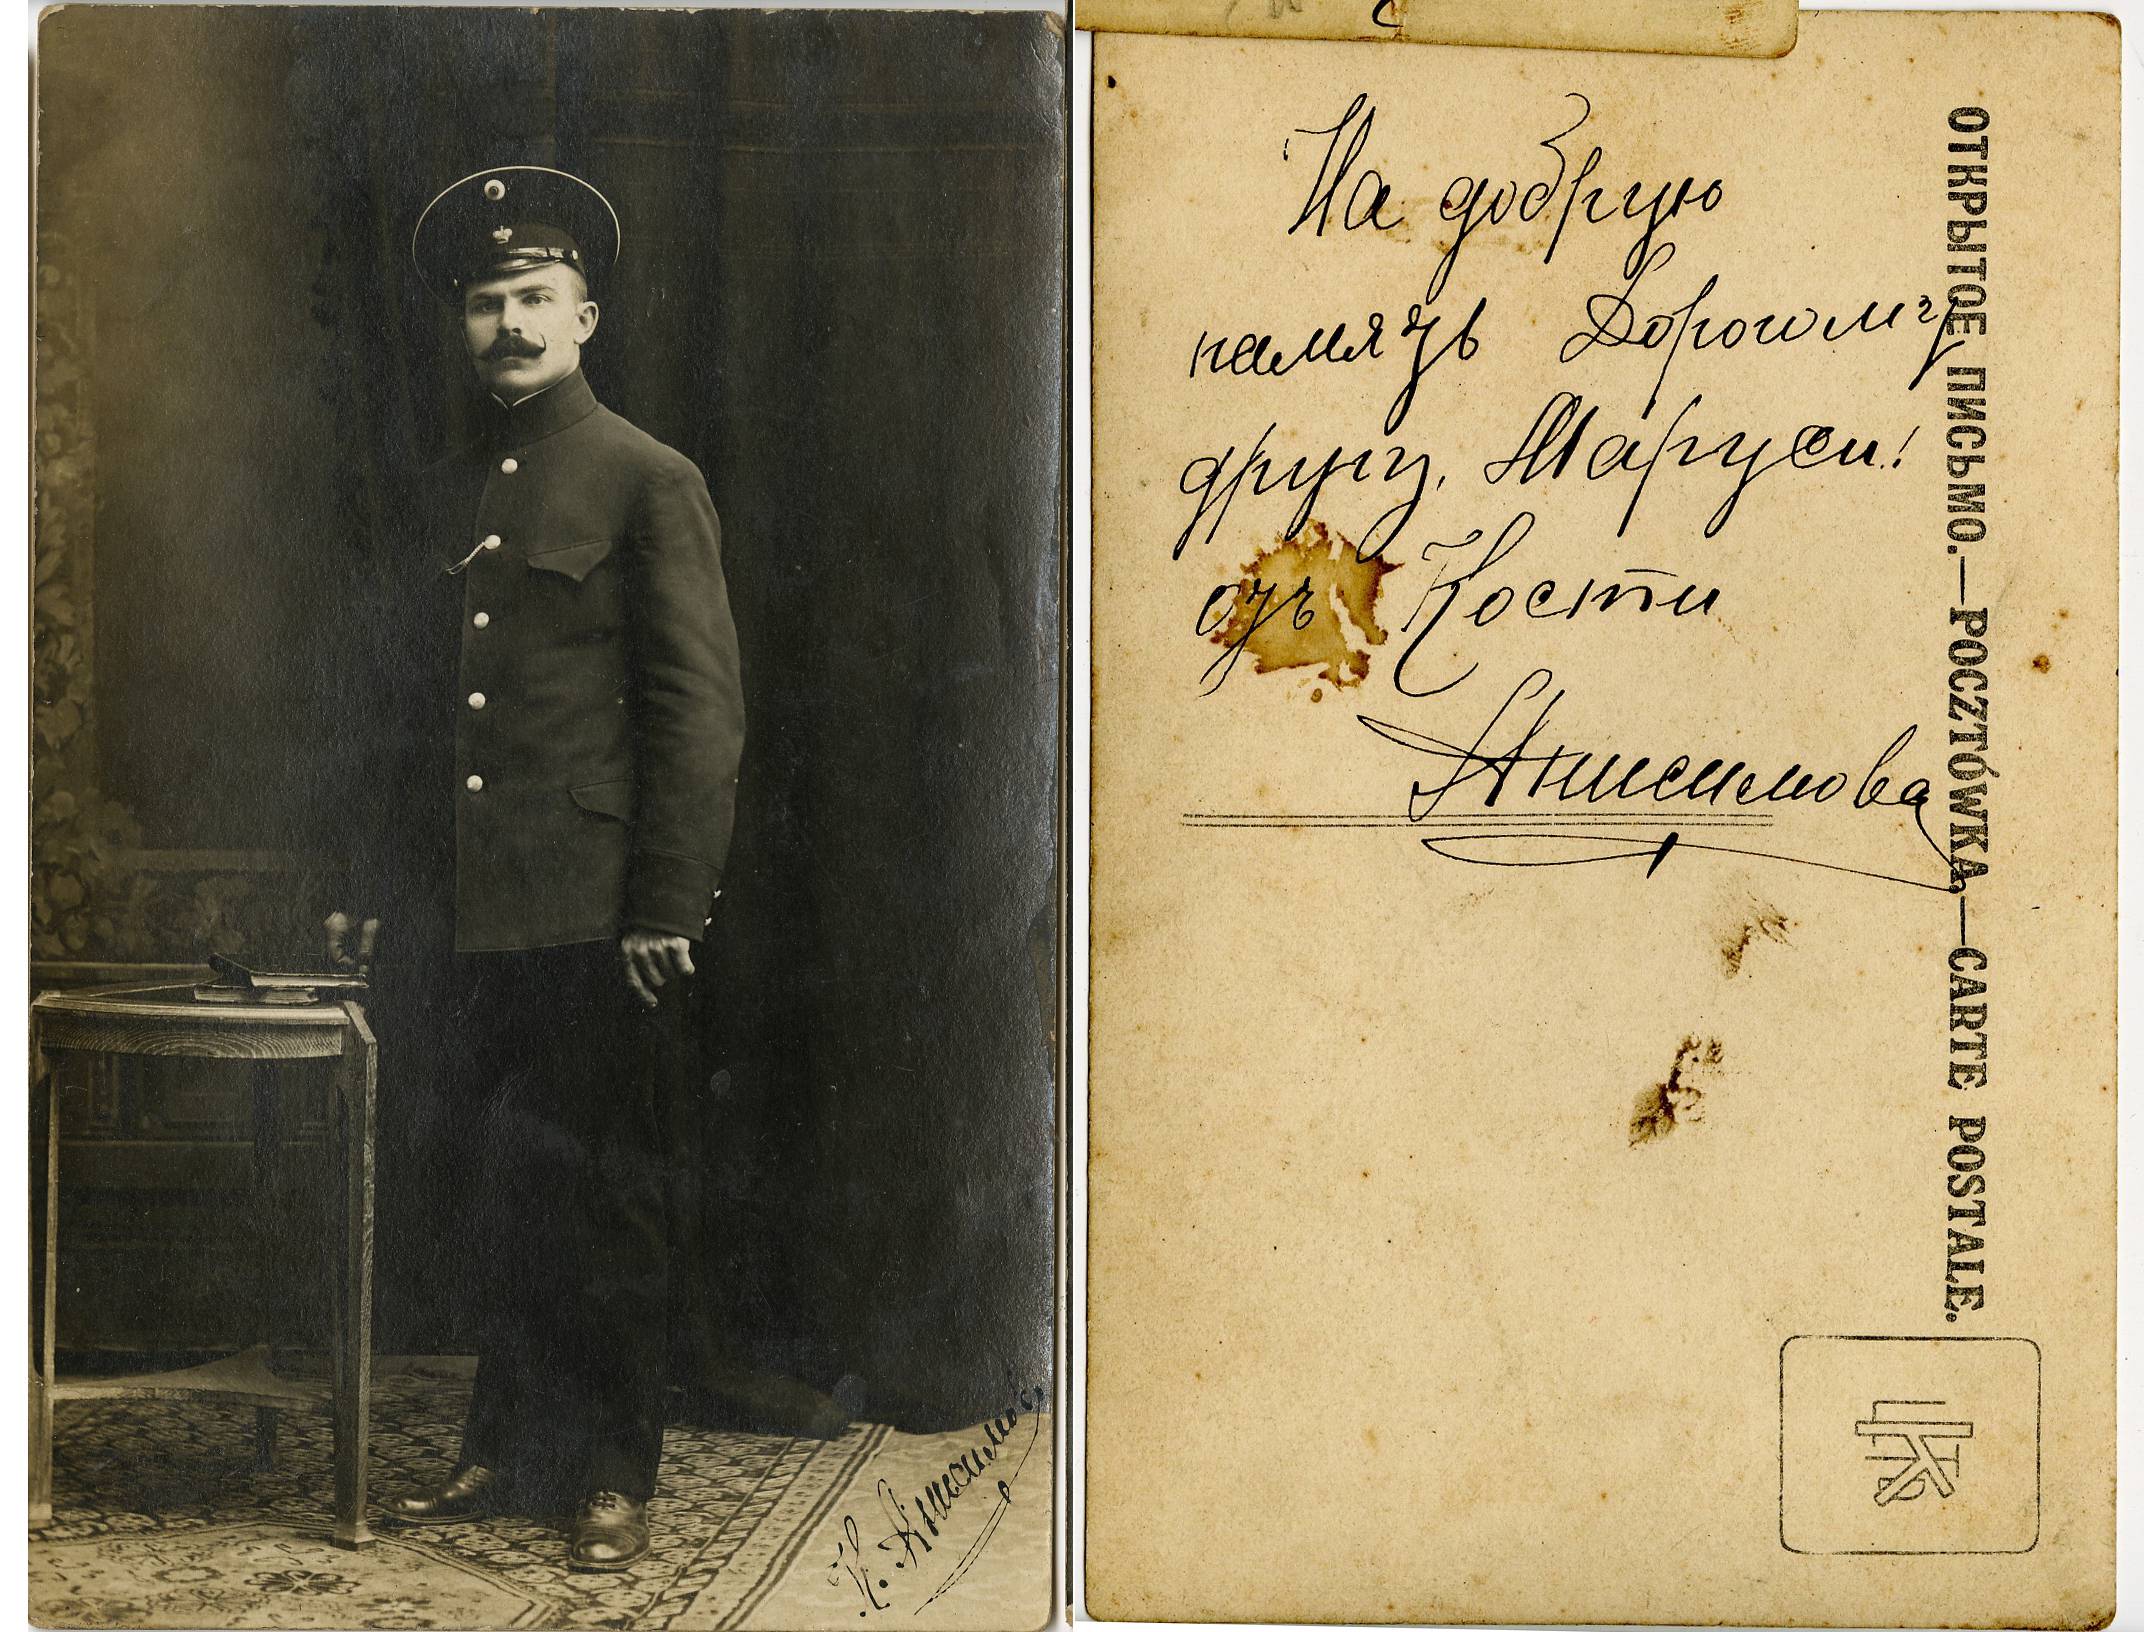 К. Анисимовъ
На добрую
память Дорогому
другу, Маруси!
отъ Кости
Анисимова
ОТКРЫТОЕ ПИСЬМО.—POCZTÓWKA.—CARTE POSTALE.